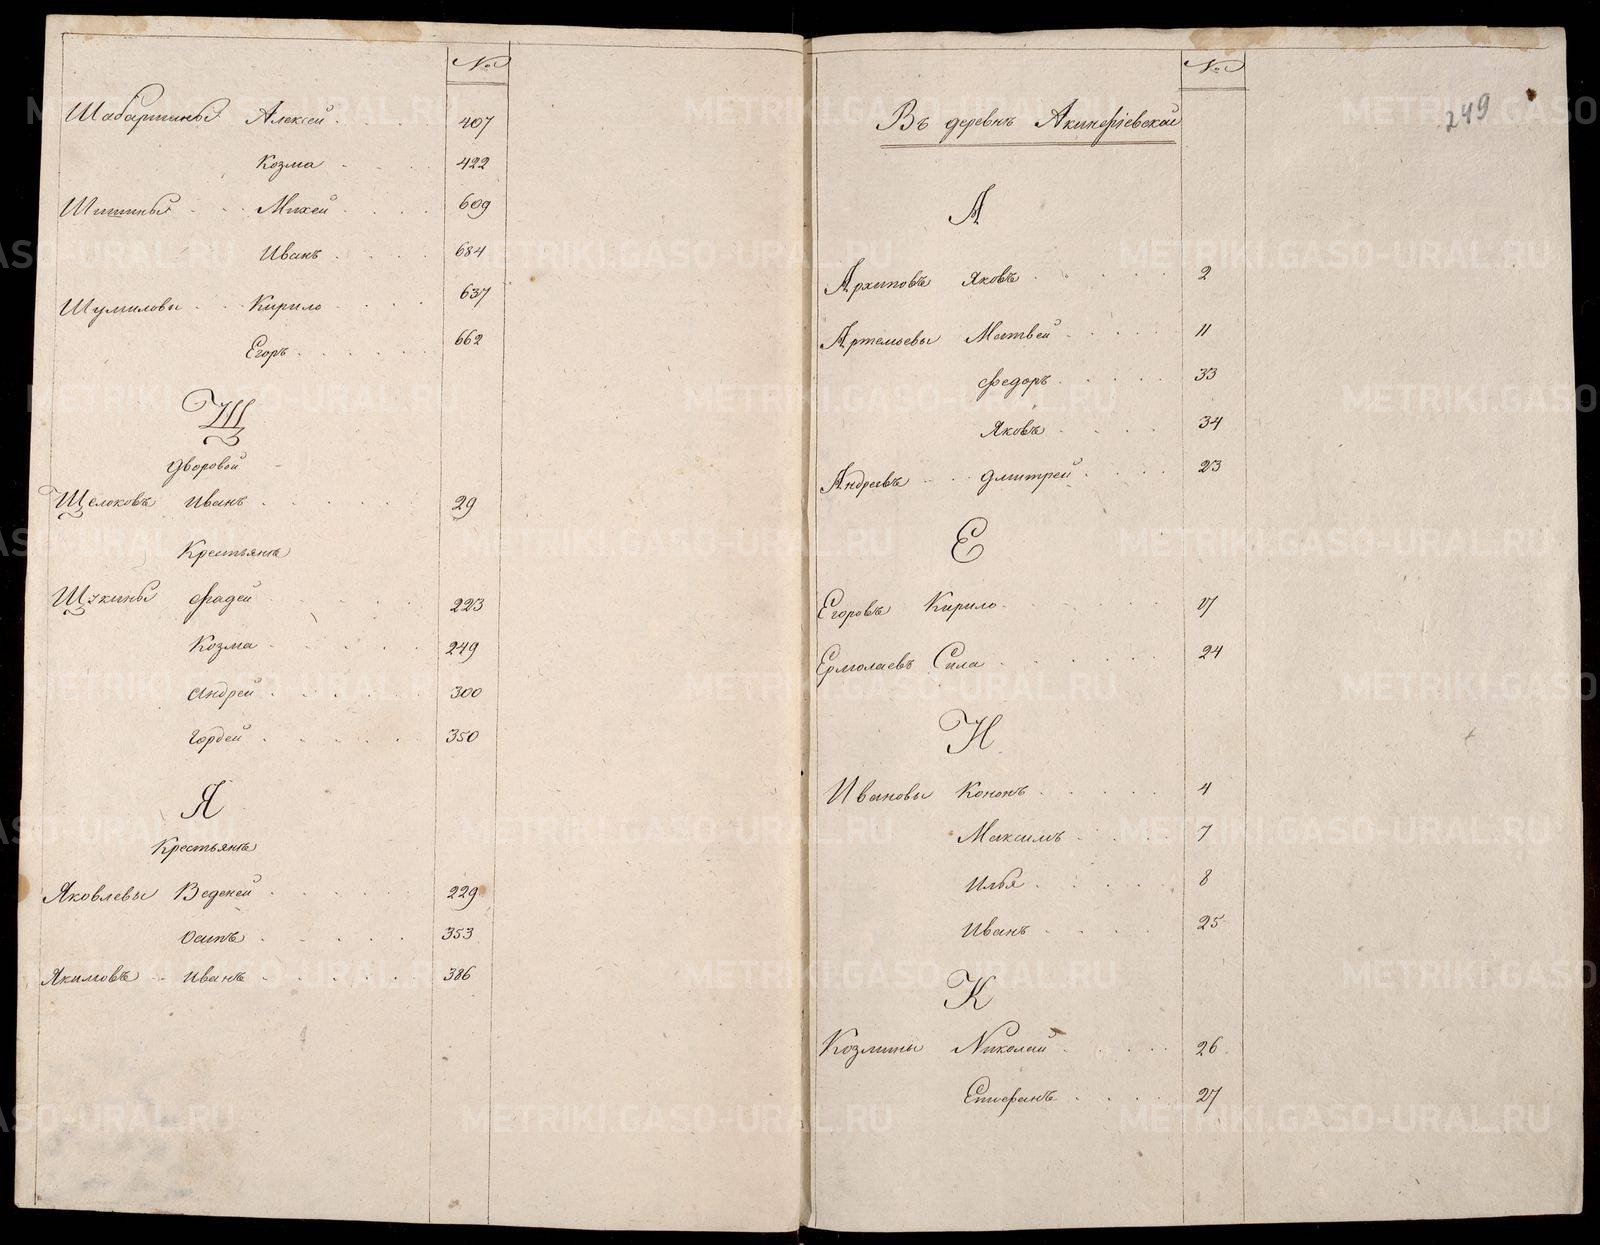 №
Шабаршины Алексей 407
Козма 422
Шишины Михей 609
Иванъ 684
Шумиловы Кирило 637
Егоръ 662
Щ
Дворовой
Щелоковъ Иванъ 29
Крестьянъ
Щукины Фадей 223
Козма 249
Андрей 300
Гордей 350
Я
Крестьянъ
Яковлевы Веденей 229
Осипъ 353
Якимовъ Иванъ 386
№
249
Въ деревнѣ Акинфіевской
А
Архиповъ Яковъ 2
Артемьевы Матвей 11
Федоръ 33
Яковъ 34
Андреевъ Дмитрей 23
Е
Егоровъ Кирило 17
Ермолаевъ Сила 24
И
Ивановы Кононъ 4
Максимъ 7
Илья 8
Иванъ 25
К
Козмины Николай 26
Епифанъ 27
METRIKI.GASO-URAL.RU